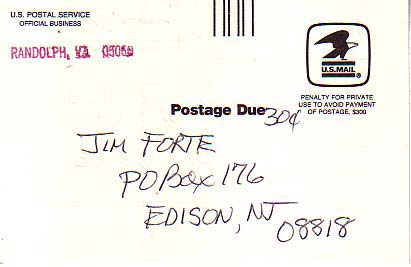 U.S. POSTAL SERVICE
OFFICIAL BUSINESS
RANDOLPH, VT 05060
U.S. MAIL
PENALTY FOR PRIVATE
USE TO AVOID PAYMENT
OF POSTAGE, $300
Postage Due 30¢
JIM FORTE
P.O. Box 176
EDISON, NJ
08818